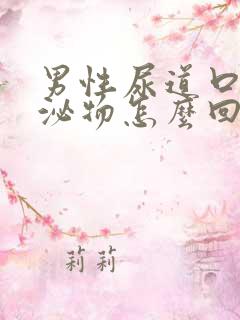 男性尿道口
泌物怎麼回
莉莉